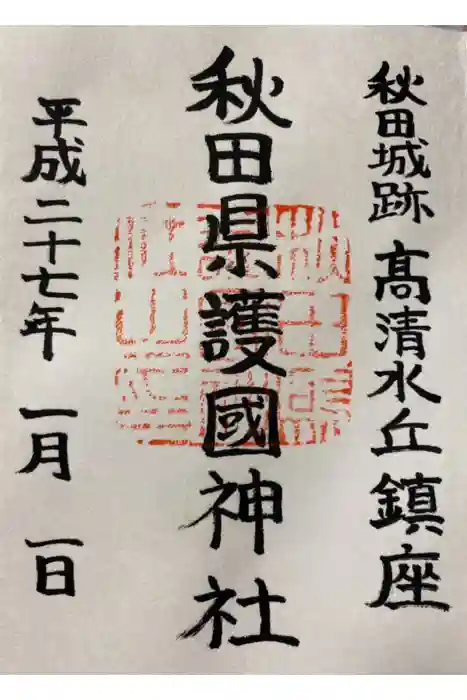 秋田城跡 髙清水丘 鎮座
秋田県護國神社
平成二十七年 一月 一日